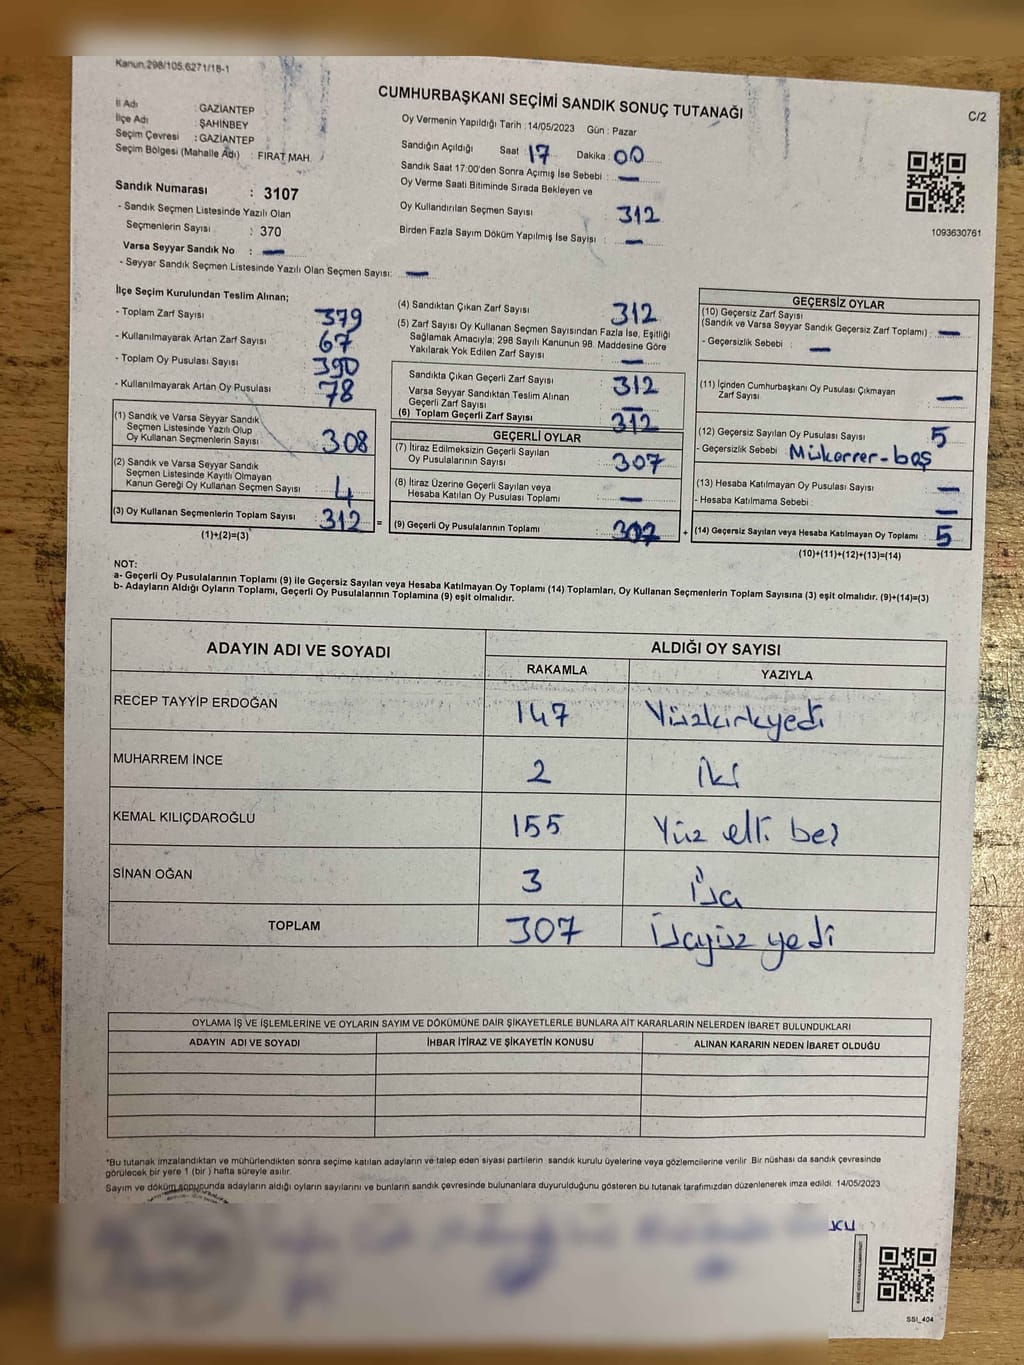 Kanun.298/105.6271/18-1
CUMHURBAŞKANI SEÇİMİ SANDIK SONUÇ TUTANAĞI
C/2
İl Adı : GAZİANTEP
İlçe Adı : ŞAHİNBEY
Seçim Çevresi : GAZİANTEP
Seçim Bölgesi (Mahalle Adı) : FIRAT MAH.
Sandık Numarası : 3107
- Sandık Seçmen Listesinde Yazılı Olan
Seçmenlerin Sayısı : 370
Varsa Seyyar Sandık No : —
- Seyyar Sandık Seçmen Listesinde Yazılı Olan Seçmen Sayısı: —
Oy Vermenin Yapıldığı Tarih :14/05/2023 Gün : Pazar
Sandığın Açıldığı Saat : 17 Dakika : 00
Sandık Saat 17:00'den Sonra Açımış İse Sebebi : —
Oy Verme Saati Bitiminde Sırada Bekleyen ve
Oy Kullandırılan Seçmen Sayısı : 312
Birden Fazla Sayım Döküm Yapılmış İse Sayısı : —
1093630761
İlçe Seçim Kurulundan Teslim Alınan;
- Toplam Zarf Sayısı : 379
- Kullanılmayarak Artan Zarf Sayısı : 67
- Toplam Oy Pusulası Sayısı : 390
- Kullanılmayarak Artan Oy Pusulası : 78
(1) Sandık ve Varsa Seyyar Sandık
Seçmen Listesinde Yazılı Olup
Oy Kullanan Seçmenlerin Sayısı : 308
(2) Sandık ve Varsa Seyyar Sandık
Seçmen Listesinde Kayıtlı Olmayan
Kanun Gereği Oy Kullanan Seçmen Sayısı : 4
(3) Oy Kullanan Seçmenlerin Toplam Sayısı : 312
(1)+(2)=(3)
=
(4) Sandıktan Çıkan Zarf Sayısı : 312
(5) Zarf Sayısı Oy Kullanan Seçmen Sayısından Fazla İse, Eşitliği
Sağlamak Amacıyla; 298 Sayılı Kanunun 98. Maddesine Göre
Yakılarak Yok Edilen Zarf Sayısı : —
Sandıkta Çıkan Geçerli Zarf Sayısı : 312
Varsa Seyyar Sandıktan Teslim Alınan
Geçerli Zarf Sayısı : —
(6) Toplam Geçerli Zarf Sayısı : 312
GEÇERLİ OYLAR
(7) İtiraz Edilmeksizin Geçerli Sayılan
Oy Pusulalarının Sayısı : 307
(8) İtiraz Üzerine Geçerli Sayılan veya
Hesaba Katılan Oy Pusulası Toplamı : —
(9) Geçerli Oy Pusulalarının Toplamı : 307
+
GEÇERSİZ OYLAR
(10) Geçersiz Zarf Sayısı
(Sandık ve Varsa Seyyar Sandık Geçersiz Zarf Toplamı) : —
- Geçersizlik Sebebi : —
(11) İçinden Cumhurbaşkanı Oy Pusulası Çıkmayan
Zarf Sayısı : —
(12) Geçersiz Sayılan Oy Pusulası Sayısı : 5
- Geçersizlik Sebebi : Mükerrer-boş
(13) Hesaba Katılmayan Oy Pusulası Sayısı : —
- Hesaba Katılmama Sebebi : —
(14) Geçersiz Sayılan veya Hesaba Katılmayan Oy Toplamı : 5
(10)+(11)+(12)+(13)=(14)
NOT:
a- Geçerli Oy Pusulalarının Toplamı (9) ile Geçersiz Sayılan veya Hesaba Katılmayan Oy Toplamı (14) Toplamları, Oy Kullanan Seçmenlerin Toplam Sayısına (3) eşit olmalıdır. (9)+(14)=(3)
b- Adayların Aldığı Oyların Toplamı, Geçerli Oy Pusulalarının Toplamına (9) eşit olmalıdır.
ADAYIN ADI VE SOYADI ALDIĞI OY SAYISI
RAKAMLA YAZIYLA
RECEP TAYYİP ERDOĞAN 147 Yüzkırkyedi
MUHARREM İNCE 2 İki
KEMAL KILIÇDAROĞLU 155 Yüz elli beş
SİNAN OĞAN 3 Üç
TOPLAM 307 Üçyüz yedi
OYLAMA İŞ VE İŞLEMLERİNE VE OYLARIN SAYIM VE DÖKÜMÜNE DAİR ŞİKAYETLERLE BUNLARA AİT KARARLARIN NELERDEN İBARET BULUNDUKLARI
ADAYIN ADI VE SOYADI İHBAR İTİRAZ VE ŞİKAYETİN KONUSU ALINAN KARARIN NEDEN İBARET OLDUĞU
*Bu tutanak imzalandıktan ve mühürlendikten sonra seçime katılan adayların ve talep eden siyasi partilerin sandık kurulu üyelerine veya gözlemcilerine verilir .Bir nüshası da sandık çevresinde
görülecek bir yere 1 (bir ) hafta süreyle asılır.
Sayım ve döküm sonucunda adayların aldığı oyların sayılarını ve bunların sandık çevresinde bulunanlara duyurulduğunu gösteren bu tutanak tarafımızdan düzenlenerek imza edildi. 14/05/2023
SSİ_404